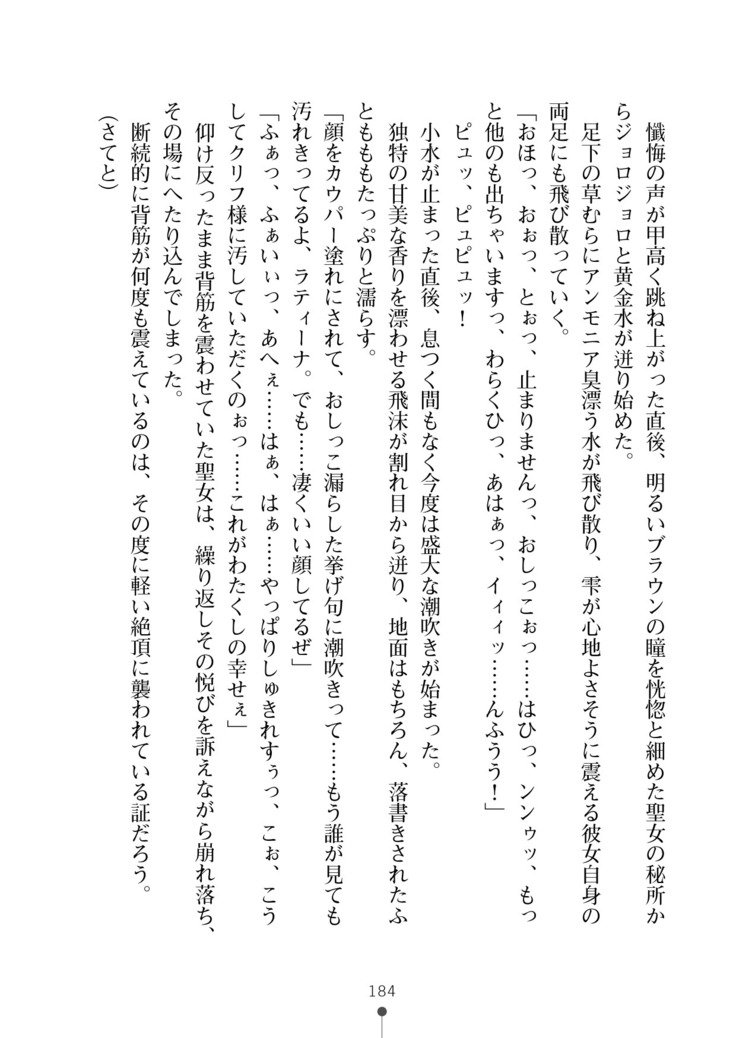 懺悔の声が甲高く跳ね上がった直後、明るいブラウンの瞳を恍惚と細めた聖女の秘所か
らジョロジョロと黄金水が迸り始めた。
足下の草むらにアンモニア臭漂う水が飛び散り、雫が心地よさそうに震える彼女自身の
両足にも飛び散っていく。
「おほっ、おぉっ、とぉっ、止まりませんっ、おしっこぉっ……はひっ、ンンゥッ、もっ
と他のも出ちゃいますっ、わらくひっ、あはぁっ、イィィッ……んふうう！」
ピュッ、ピュピュッ！
小水が止まった直後、息つく間もなく今度は盛大な潮吹きが始まった。
独特の甘美な香りを漂わせる飛沫が割れ目から迸り、地面はもちろん、落書きされたふ
とももたっぷりと濡らす。
「顔をカウパー塗れにされて、おしっこ漏らした挙げ句に潮吹きって……もう誰が見ても
汚れきってるよ、ラティーナ。でも……凄くいい顔してるぜ」
「ふぁっ、ふぁいぃっ、あへぇ……はぁ、はぁ……やっぱりしゅきれすぅっ、こぉ、こう
してクリフ様に汚していただくのぉっ……これがわたくしの幸せぇ」
仰け反ったまま背筋を震わせていた聖女は、繰り返しその悦びを訴えながら崩れ落ち、
その場にへたり込んでしまった。
断続的に背筋が何度も震えているのは、その度に軽い絶頂に襲われている証だろう。
（さてと）
184